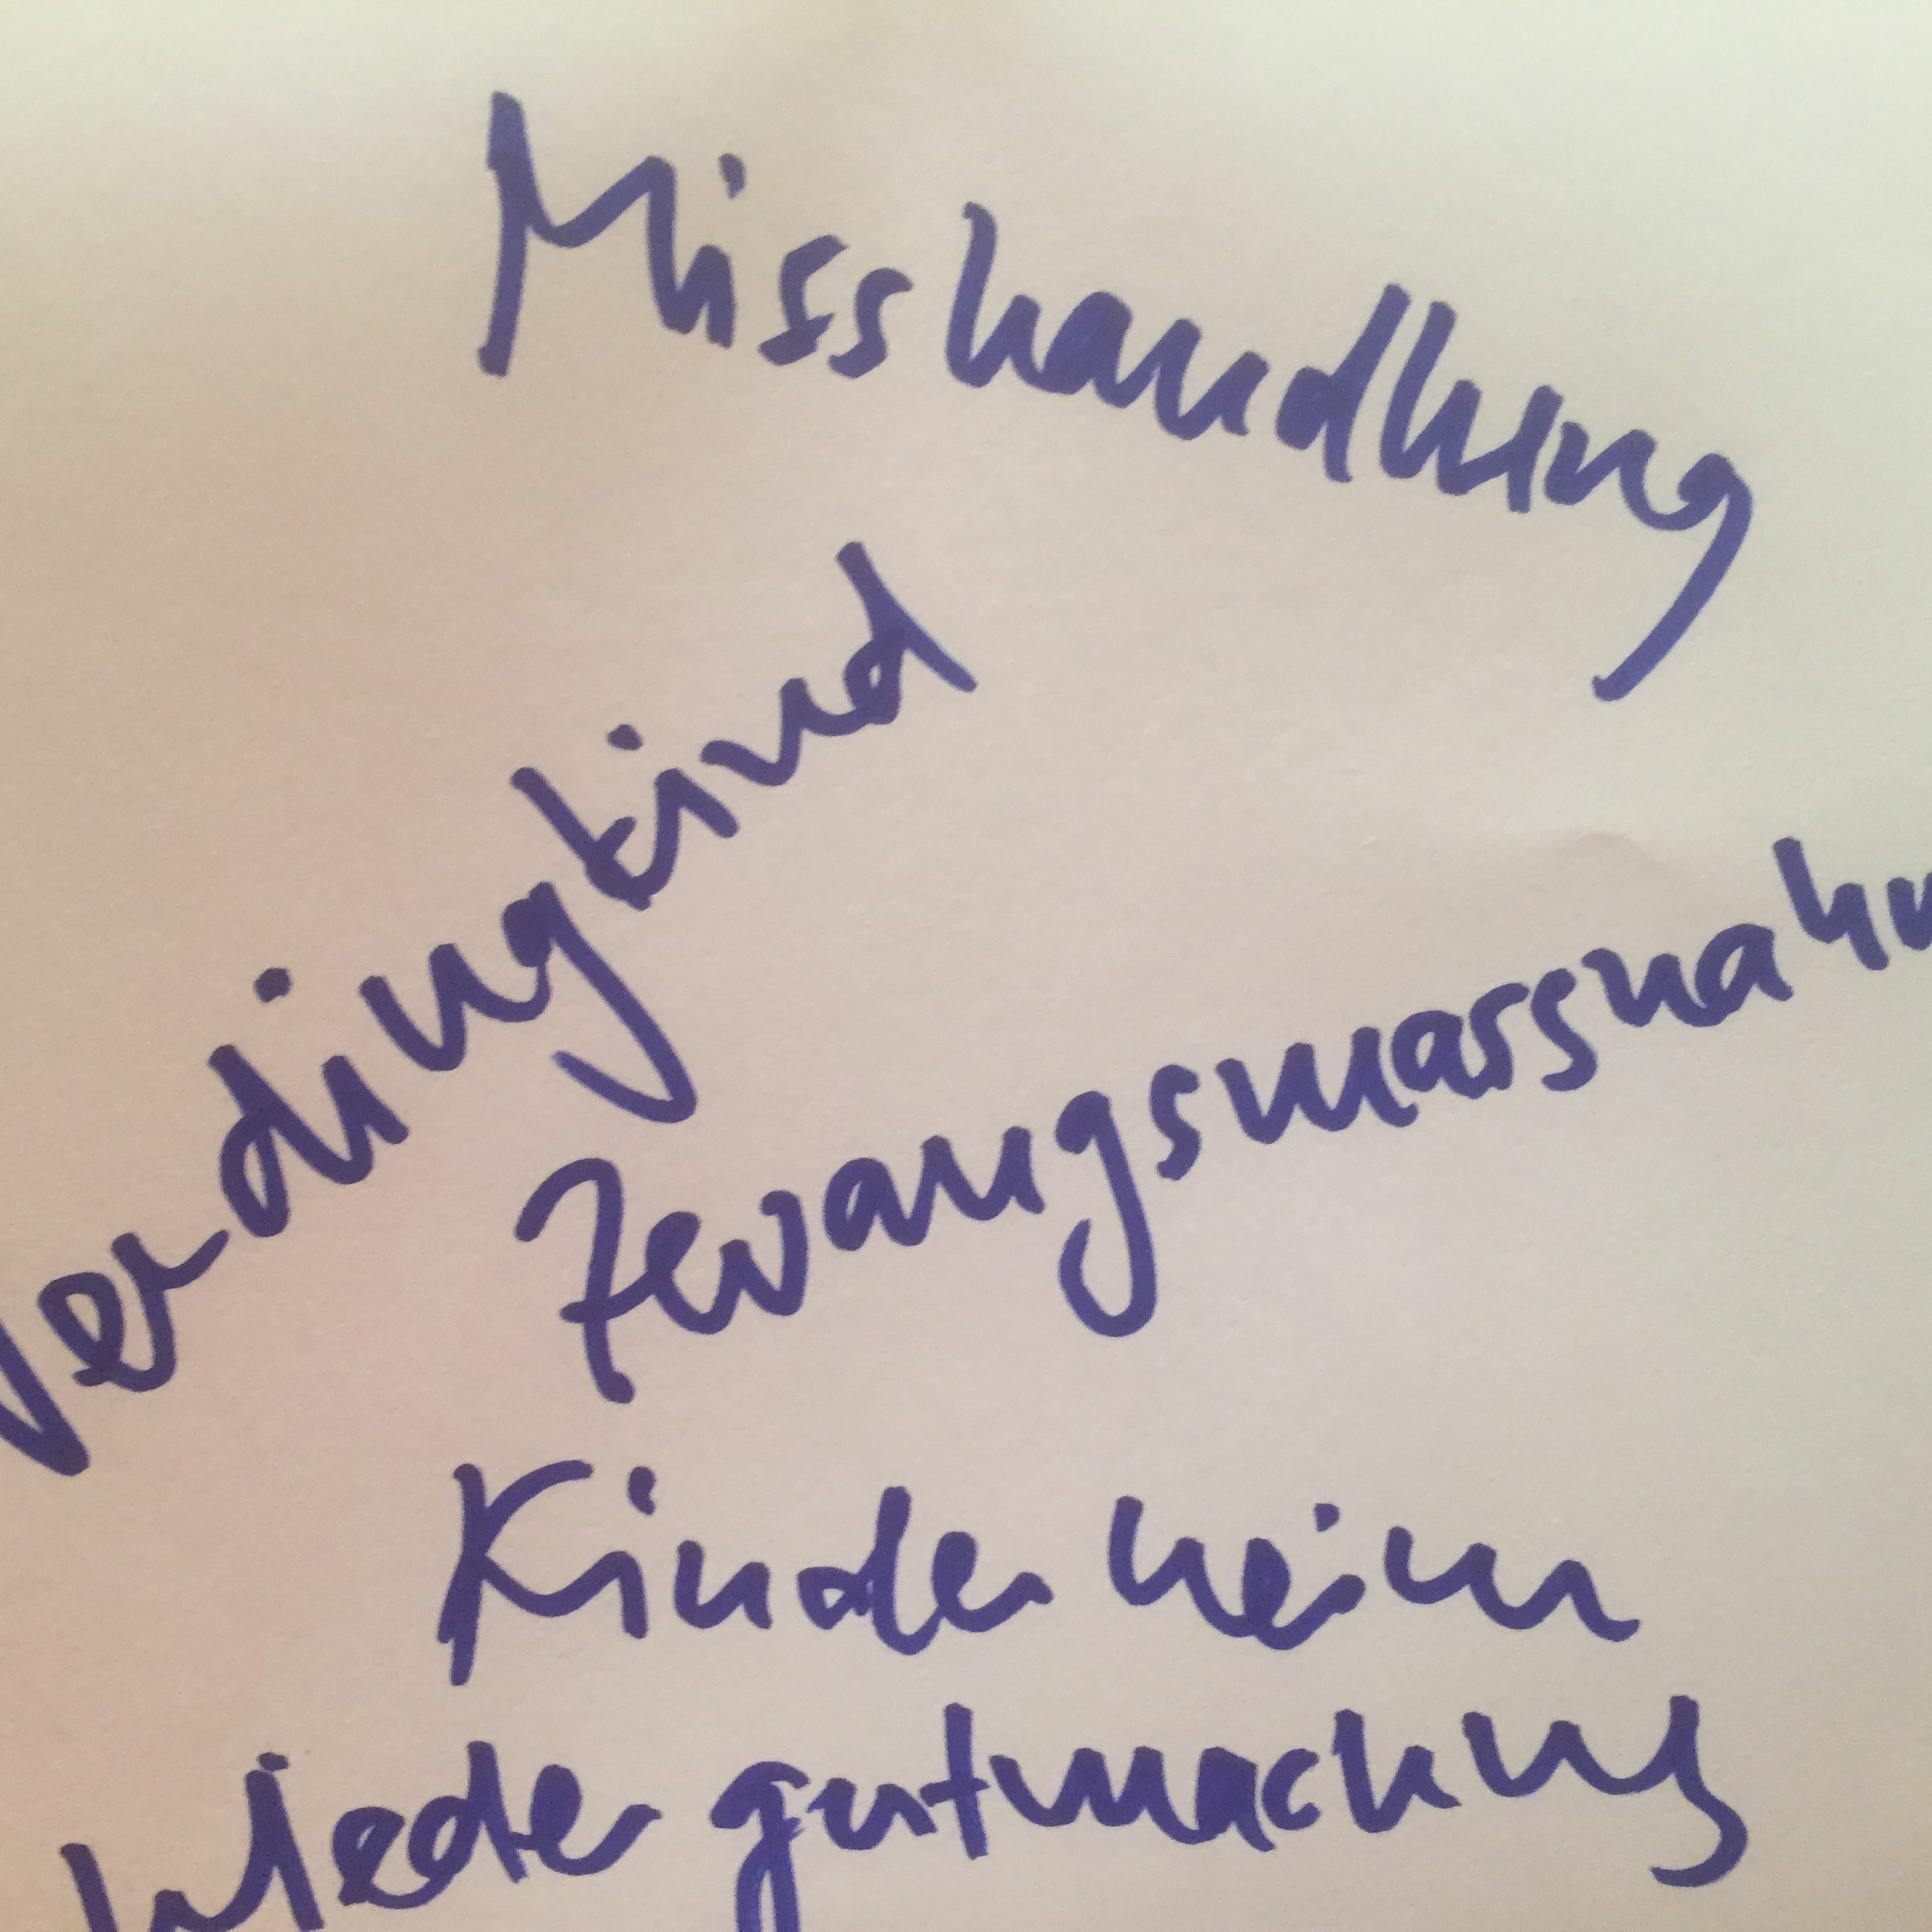 Misshandlung
Verdingkind
Zwangsmassnahm
Kinderheim
Wiedergutmachung